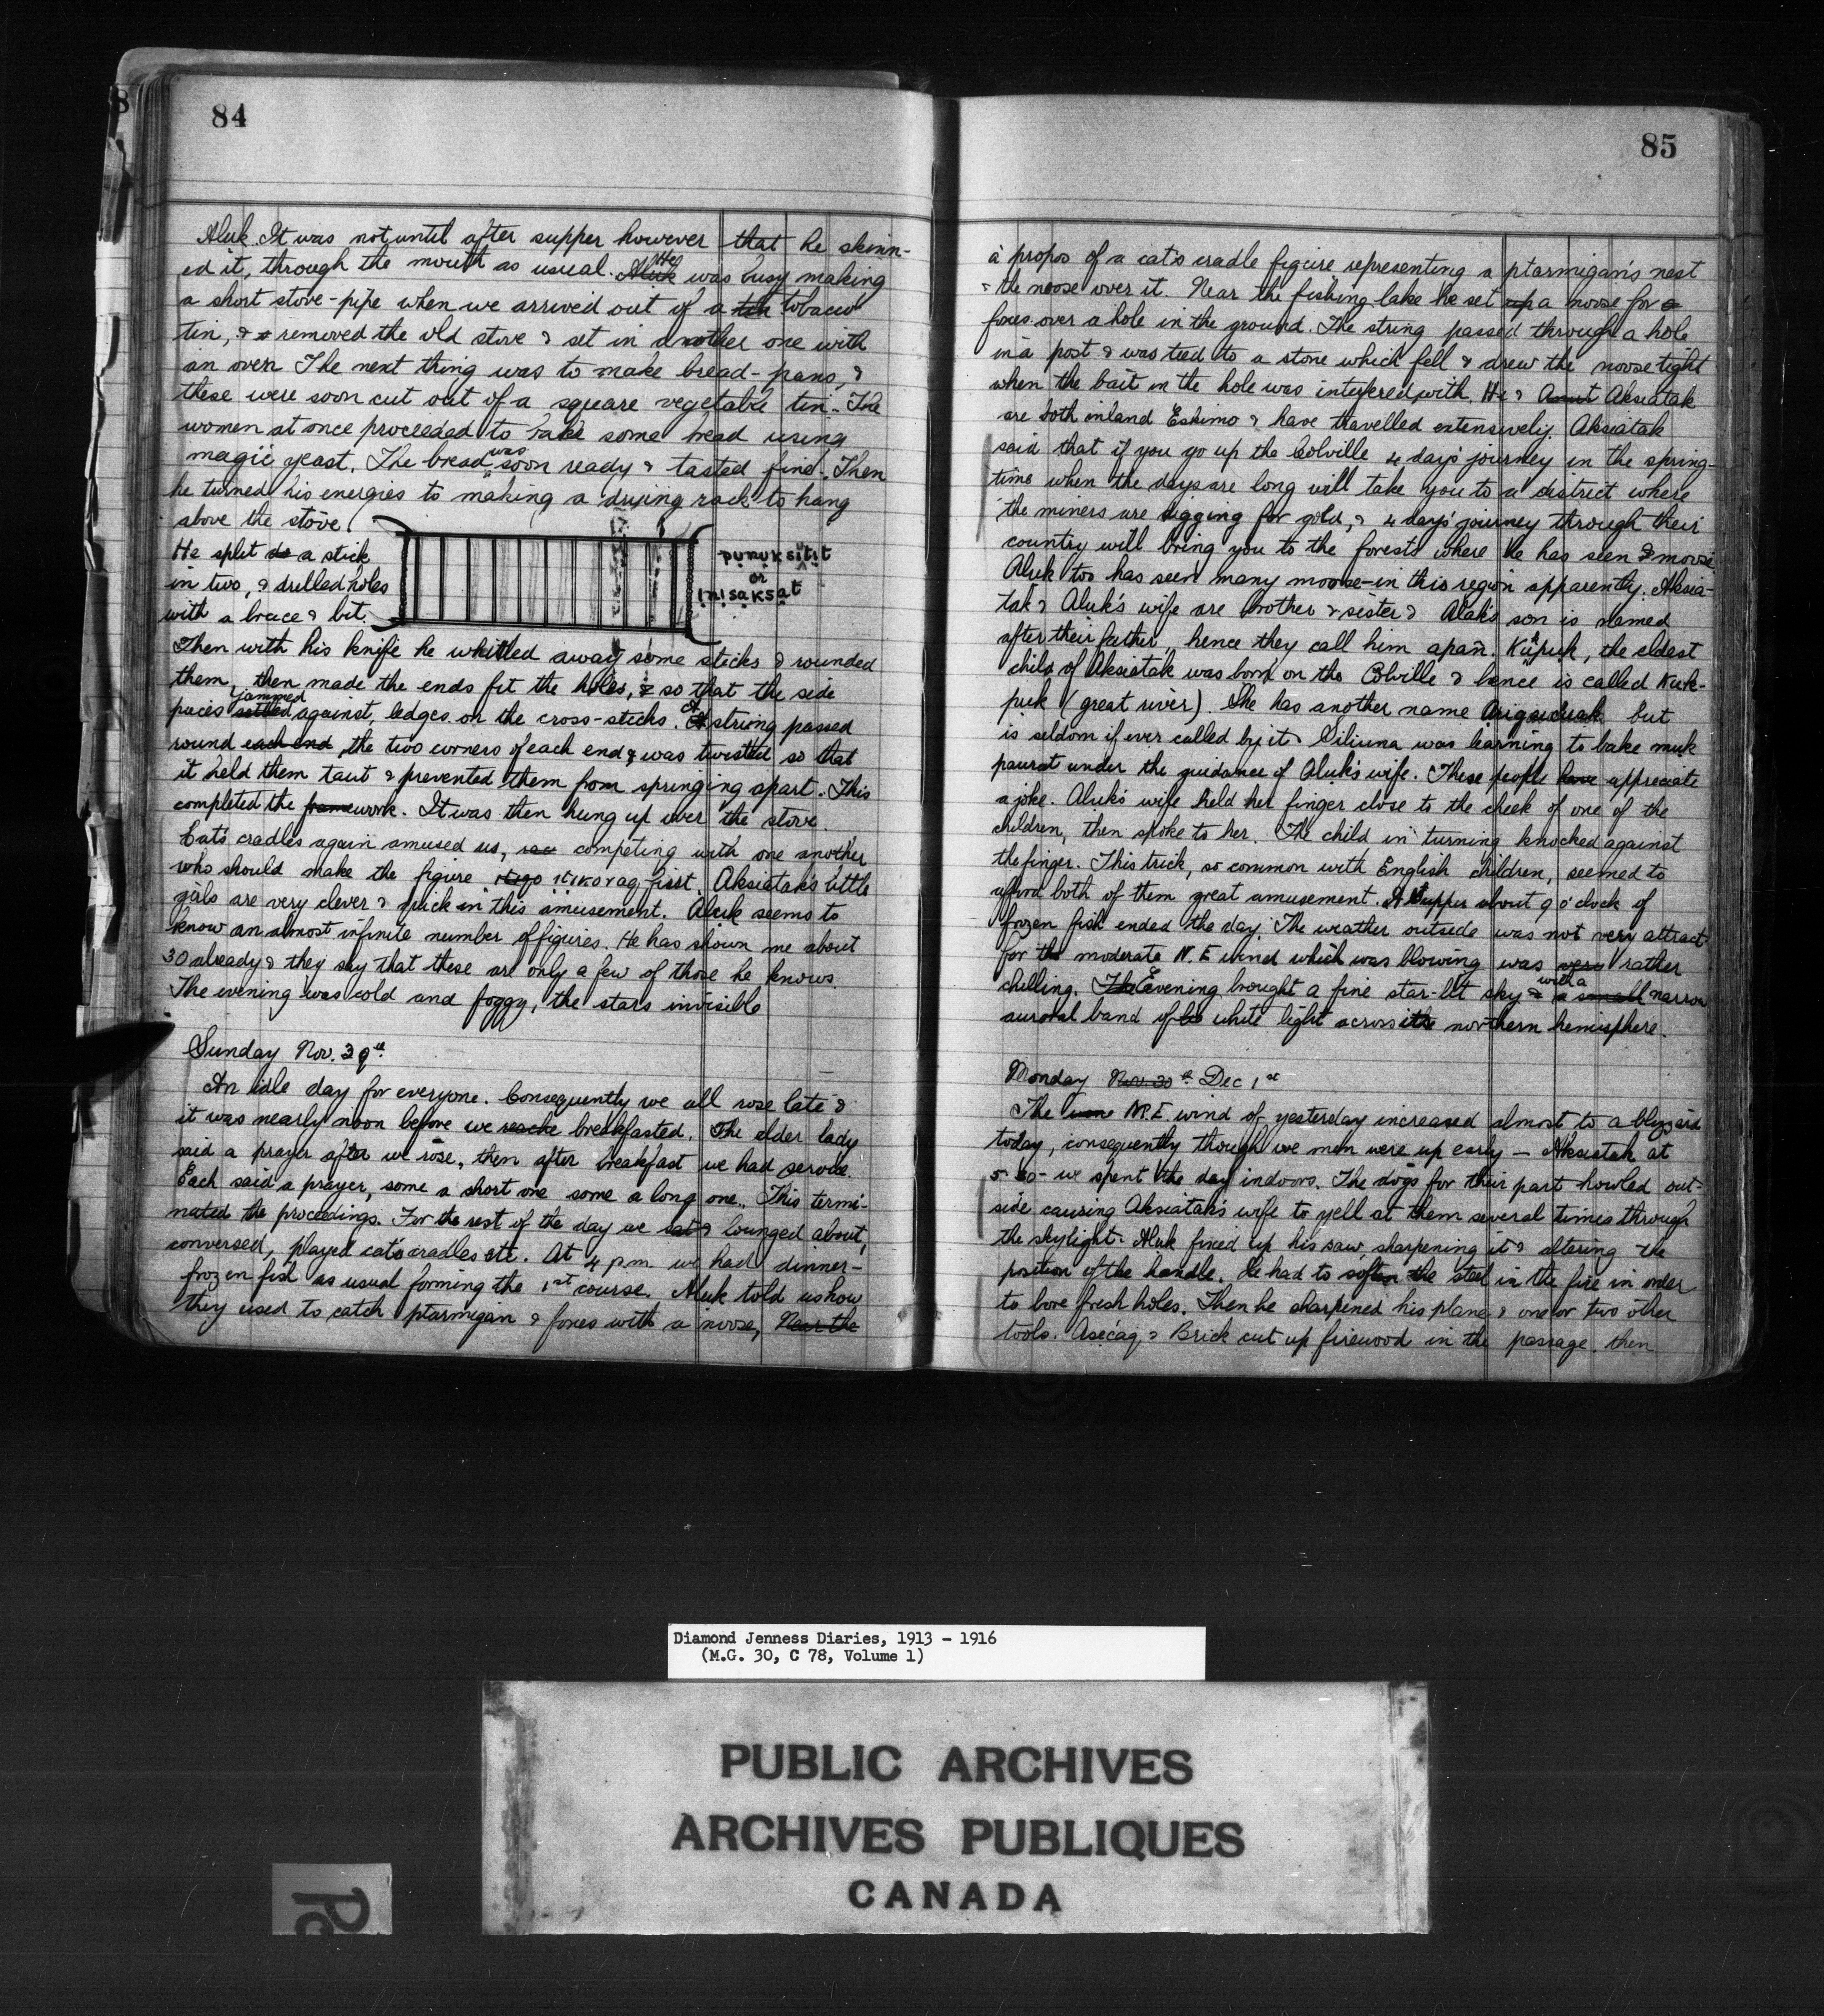 84
Aluk. It was not until after supper however that he skinn-
ed it, through the mouth as usual. Aluk He was busy making
a short stove-pipe when we arrived out of a tin tobacco
tin, & removed the old stove & set in another one with
an oven. The next thing was to make bread-pans, &
these were soon cut out of a square vegetable tin. The
women at once proceeded to bake some bread using
magic yeast. The bread was soon ready & tasted fine. Then
he turned his energies to making a drying rack to hang
above the stove.
He split a stick
in two, & drilled holes
with a brace & bit.
pụnụksịtịt
or
ịnịsạksạt
Then with his knife he whittled away some sticks & rounded
them, then made the ends fit the holes, & so that the side
pieces settled jammed against ledges on the cross-sticks. A string passed
round each end the two corners of each end & was twisted so that
it held them taut & prevented them from springing apart. This
completed the framework. It was then hung up over the stove.
Cat's cradles again amused us, competing with one another
who should make the figure first. Aksiatak's little
girls are very clever & quick in this amusement. Aluk seems to
know an almost infinite number of figures. He has shown me about
30 already & they say that these are only a few of those he knows.
The evening was cold and foggy, the stars invisible
Sunday Nov. 30th
An idle day for everyone. Consequently we all rose late &
it was nearly noon before we breakfasted. The elder lady
said a prayer after we rose, then after breakfast we had service.
Each said a prayer, some a short one some a long one. This termi-
nated the proceedings. For the rest of the day we sat & lounged about,
conversed, played cat's cradles etc. At 4 p.m. we had dinner-
frozen fish as usual forming the 1st course. Aluk told us how
they used to catch ptarmigan & foxes with a noose, Near the
85
à propos of a cat's cradle figure representing a ptarmigan's nest
& the noose over it. Near the fishing lake he set up a noose for
foxes over a hole in the ground. The string passed through a hole
in a post & was tied to a stone which fell & drew the noose tight
when the bait in the hole was interfered with. He & Aksiatak
are both inland Eskimo & have travelled extensively. Aksiatak
said that if you go up the Colville 4 day's journey in the spring-
time when the days are long will take you to a district where
the miners are digging for gold, & 4 days' journey through their
country will bring you to the forests where he has seen moose.
Aluk too has seen many moose in this region apparently. Aksia-
tak & Aluk's wife are brother & sister & Aluk's son is named
after their father, hence they call him apañ. Kukpuk, the eldest
child of Aksiatak was born on the Colville & hence is called Kuk-
puk (great river). She has another name but
is seldom if ever called by it. Siliuna was learning to bake muk
paurat under the guidance of Aluk's wife. These people have appreciate
a joke. Aluk's wife held her finger close to the cheek of one of the
children, then spoke to her. The child in turning knocked against
the finger. This trick, so common with English children, seemed to
afford both of them great amusement. A Supper about 9 o'clock of
frozen fish ended the day. The weather outside was not very attract.
for the moderate N.E wind which was blowing was very rather
chilling. The Evening brought a fine star-lit sky & with a a small narrow
auroral band of white light across the northern hemisphere.
Monday Nov. 30th Dec 1st
The N.E. wind of yesterday increased almost to a blizzard
today, consequently though we men were up early — Aksiatak at
5-30 - we spent the day indoors. The dogs for their part howled out-
side causing Aksiatak's wife to yell at them several times through
the skylight. Aluk fixed up his saw, sharpening it & altering the
position of the handle. He had to soften the steel in the fire in order
to bore fresh holes. Then he sharpened his plane & one or two other
tools. Asecaq & Brick cut up firewood in the passage, then
Diamond Jenness Diaries, 1913 - 1916
(M.G. 30, C 78, Volume 1)
PUBLIC ARCHIVES
ARCHIVES PUBLIQUES
CANADA